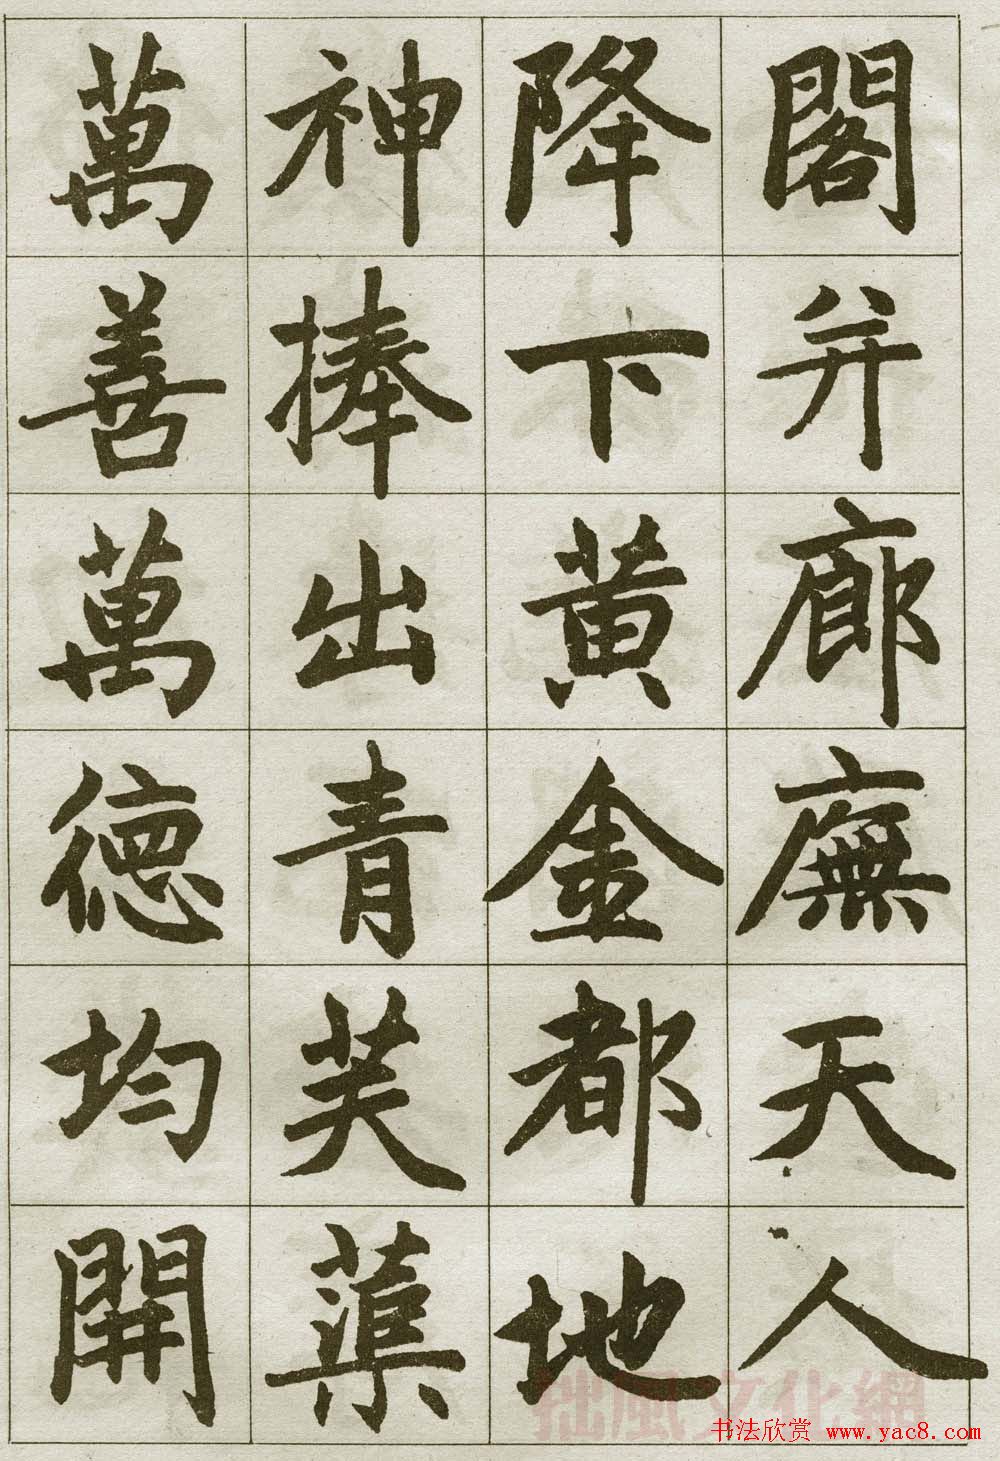 閣并廊廡天人
降下黄金都地
神捧出青芙蕖
萬善萬德均開
拙風文化網
书法欣赏 www.yac8.com